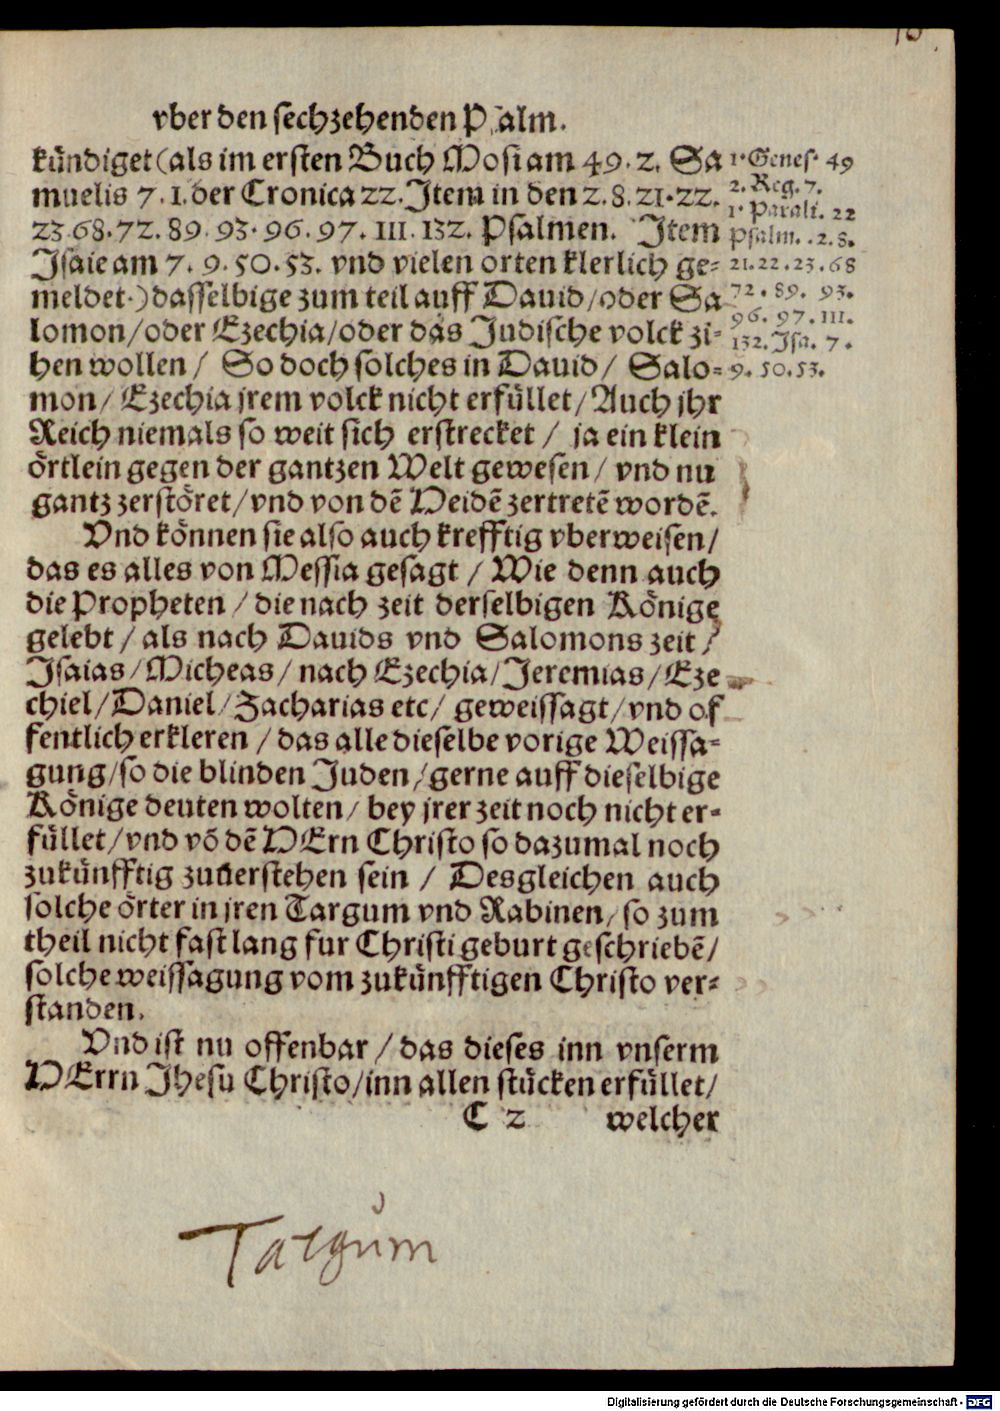 vber den sechzehenden Psalm.
kündiget (als im ersten Buch Mosi am 49. 2. Sa
muelis 7. 1. der Cronica 22. Item in den 2. 8. 21. 22.
23. 68. 72. 89. 93. 96. 97. 111. 132. Psalmen. Item
Isaie am 7. 9. 50. 53. vnd vielen orten klerlich ge=
meldet.) dasselbige zum teil auff Dauid/oder Sa
lomon/oder Ezechia/oder das Jüdische volck zi=
hen wollen / So doch solches in Dauid / Salo=
mon/ Ezechia jrem volck nicht erfüllet/ Auch jhr
Reich niemals so weit sich erstrecket / ja ein klein
örtlein gegen der gantzen Welt gewesen / vnd nu
gantz zerstöret/vnd von dē Heidē zertretē wordē.
Vnd können sie also auch krefftig vberweisen/
das es alles von Messia gesagt / Wie denn auch
die Propheten / die nach zeit derselbigen Könige
gelebt / als nach Dauids vnd Salomons zeit /
Isaias/Micheas/ nach Ezechia/Jeremias/Eze
chiel/Daniel/Zacharias etc/ geweissagt/vnd of
fentlich erkleren / das alle dieselbe vorige Weissa=
gung/so die blinden Juden/gerne auff dieselbige
Könige deuten wolten/ bey jrer zeit noch nicht er=
füllet/vnd vō dē HErn Christo so dazumal noch
zukünfftig zuuerstehen sein / Desgleichen auch
solche örter in jren Targum vnd Rabinen/ so zum
theil nicht fast lang fur Christi geburt geschriebē/
solche weissagung vom zukünfftigen Christo ver=
standen.
Vnd ist nu offenbar / das dieses inn vnserm
HErrn Jhesu Christo/inn allen stücken erfüllet/
C 2 welcher
1. Genes. 49
2. Reg. 7.
1. Parali. 22
Psalm. .2. 8.
21. 22. 23. 68
72. 89. 93.
96. 97. 111.
132. Isa. 7.
9. 50. 53.
Targum
Digitalisierung gefördert durch die Deutsche Forschungsgemeinschaft - DFG